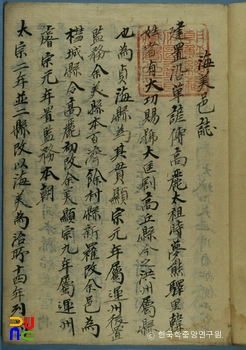 海美邑誌
建置沿革諺傳高麗太祖時夢熊驛吏韓
姓者有大功賜號大匡割高丘縣今之洪州屬縣
也為貞海縣為其貫顯宗元年屬運州後置
監務余美縣本百濟餘村縣新羅改余邑為
槥城縣令高麗初改余美顯宗九年屬運州
睿宗元年置監務本朝
太宗二年並二縣改以海美為治所十四年
한국학중앙연구원